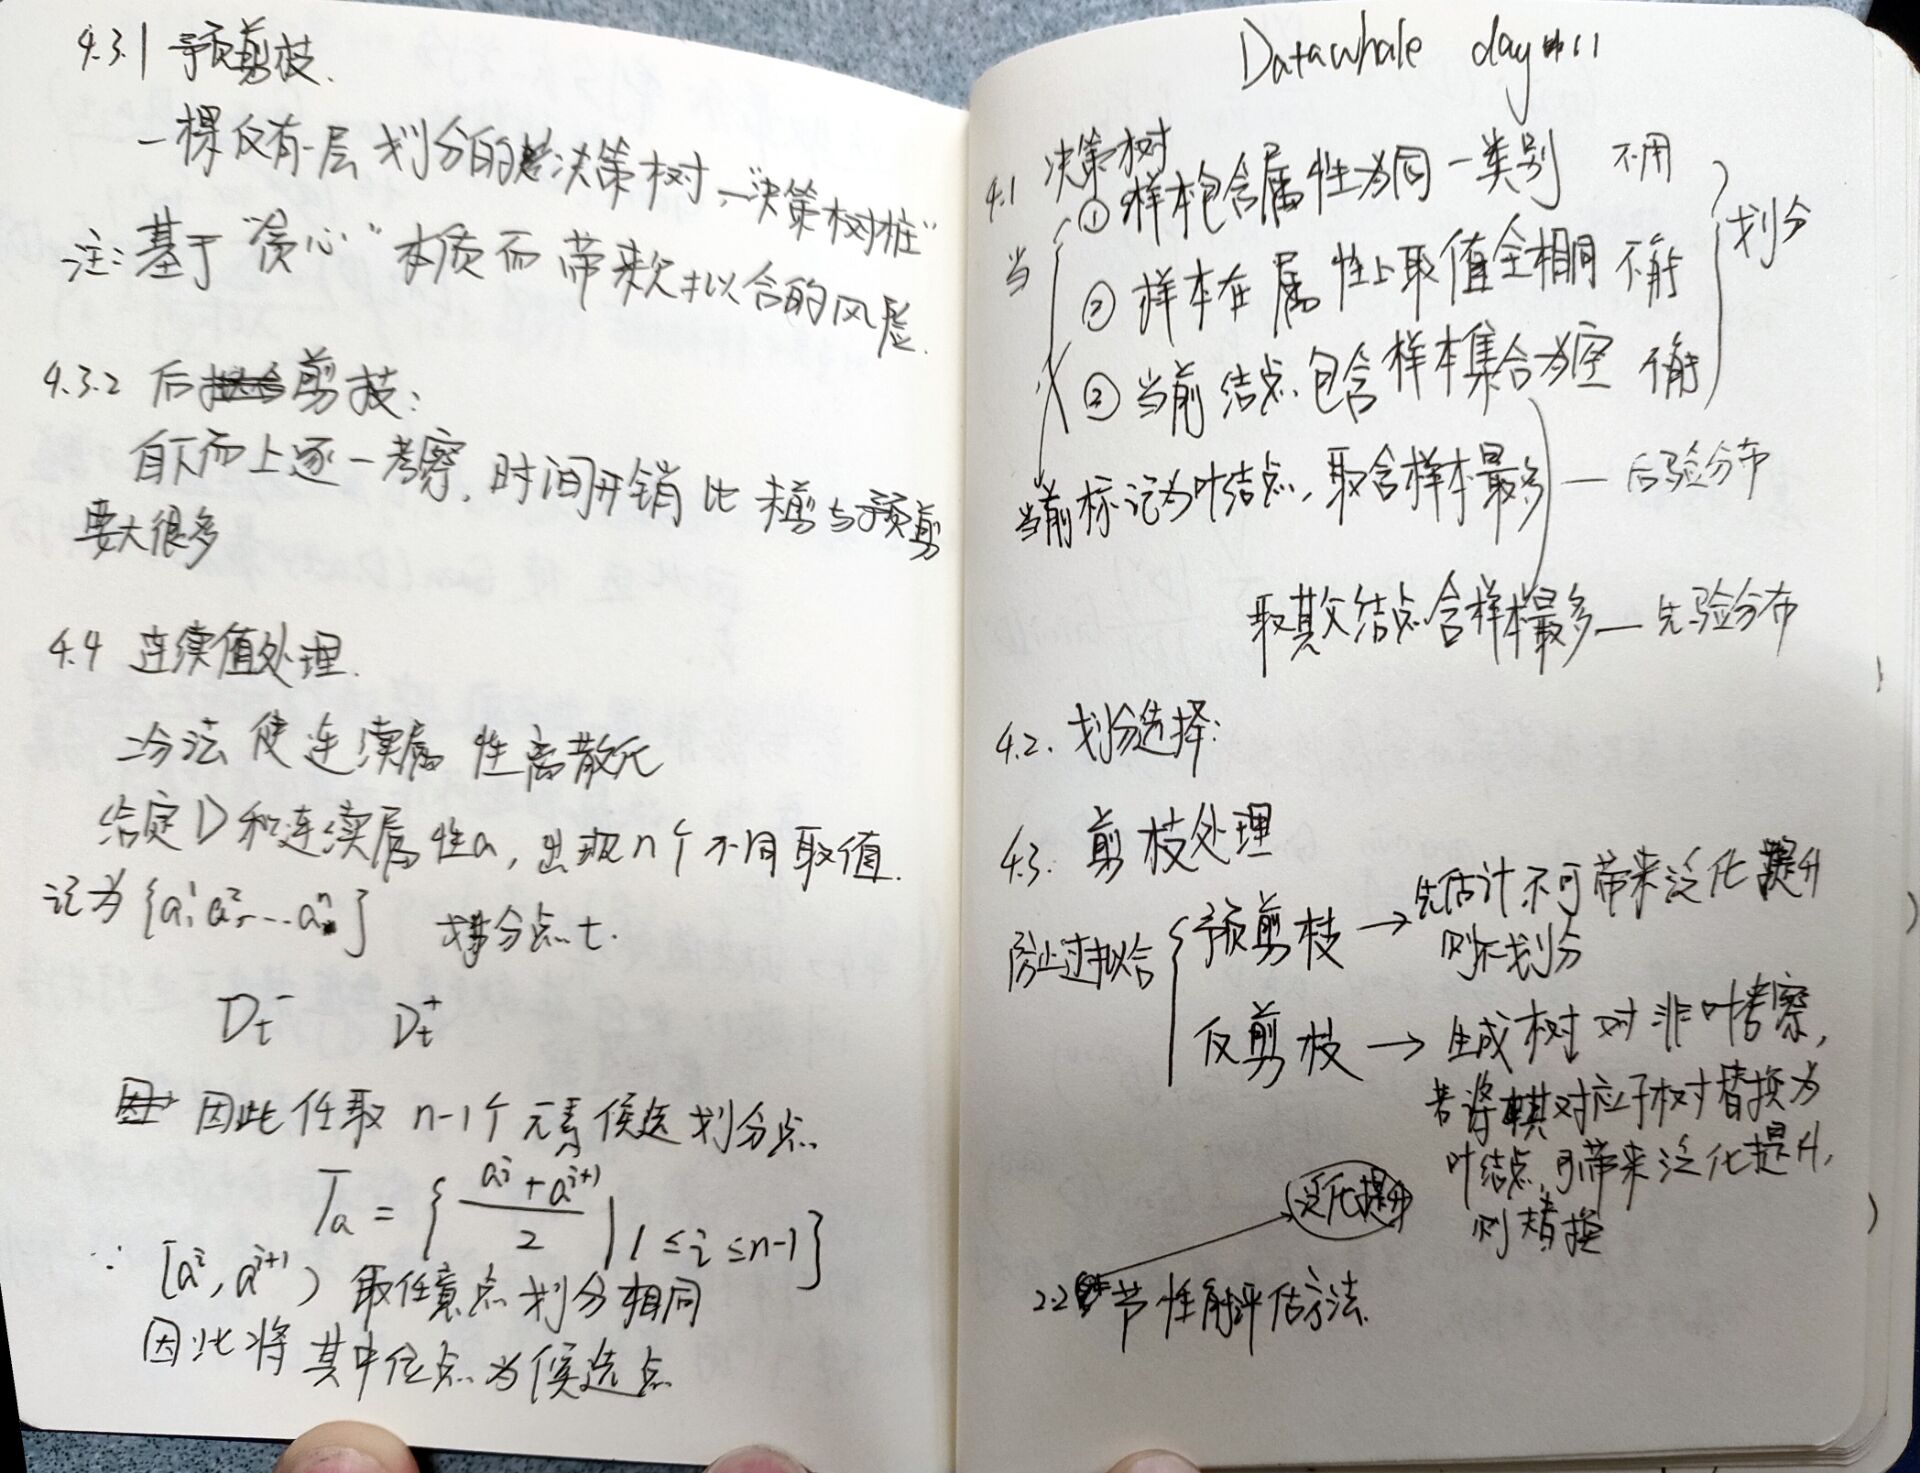 4.3.1 预剪枝.
一棵仅有一层划分的决策树, "决策树桩"
注: 基于"贪心"本质而带来欠拟合的风险.
4.3.2 后剪枝:
自下而上逐一考察, 时间开销比未剪与预剪
要大很多
4.4 连续值处理.
二分法使连续属性离散化
给定D和连续属性a, 出现n个不同取值.
记为{a¹, a², ... aⁿ} 划分点t.
Dt⁻ Dt⁺
因此任取n-1个元素候选划分点.
Ta = { (aⁱ + aⁱ⁺¹) / 2 | 1 ≤ i ≤ n-1 }
∵ [aⁱ, aⁱ⁺¹) 取任意点划分相同
因此将其中位点为候选点
Datawhale day
4.1 决策树
当 ① 样本包含属性为同一类别 不用
② 样本在属性上取值全相同 不能 划分
③ 当前结点包含样本集合为空 不能
当前标记为叶结点, 取含样本最多 — 后验分布
取其父结点含样本最多 — 先验分布
4.2. 划分选择:
4.3. 剪枝处理
防止过拟合 { 预剪枝 → 先估计不可带来泛化提升
则不划分
反剪枝 → 生成树对非叶考察,
若将其对应子树替换为
叶结点, 可带来泛化提升,
则替换
泛化提升
2.2 节性能评估方法.